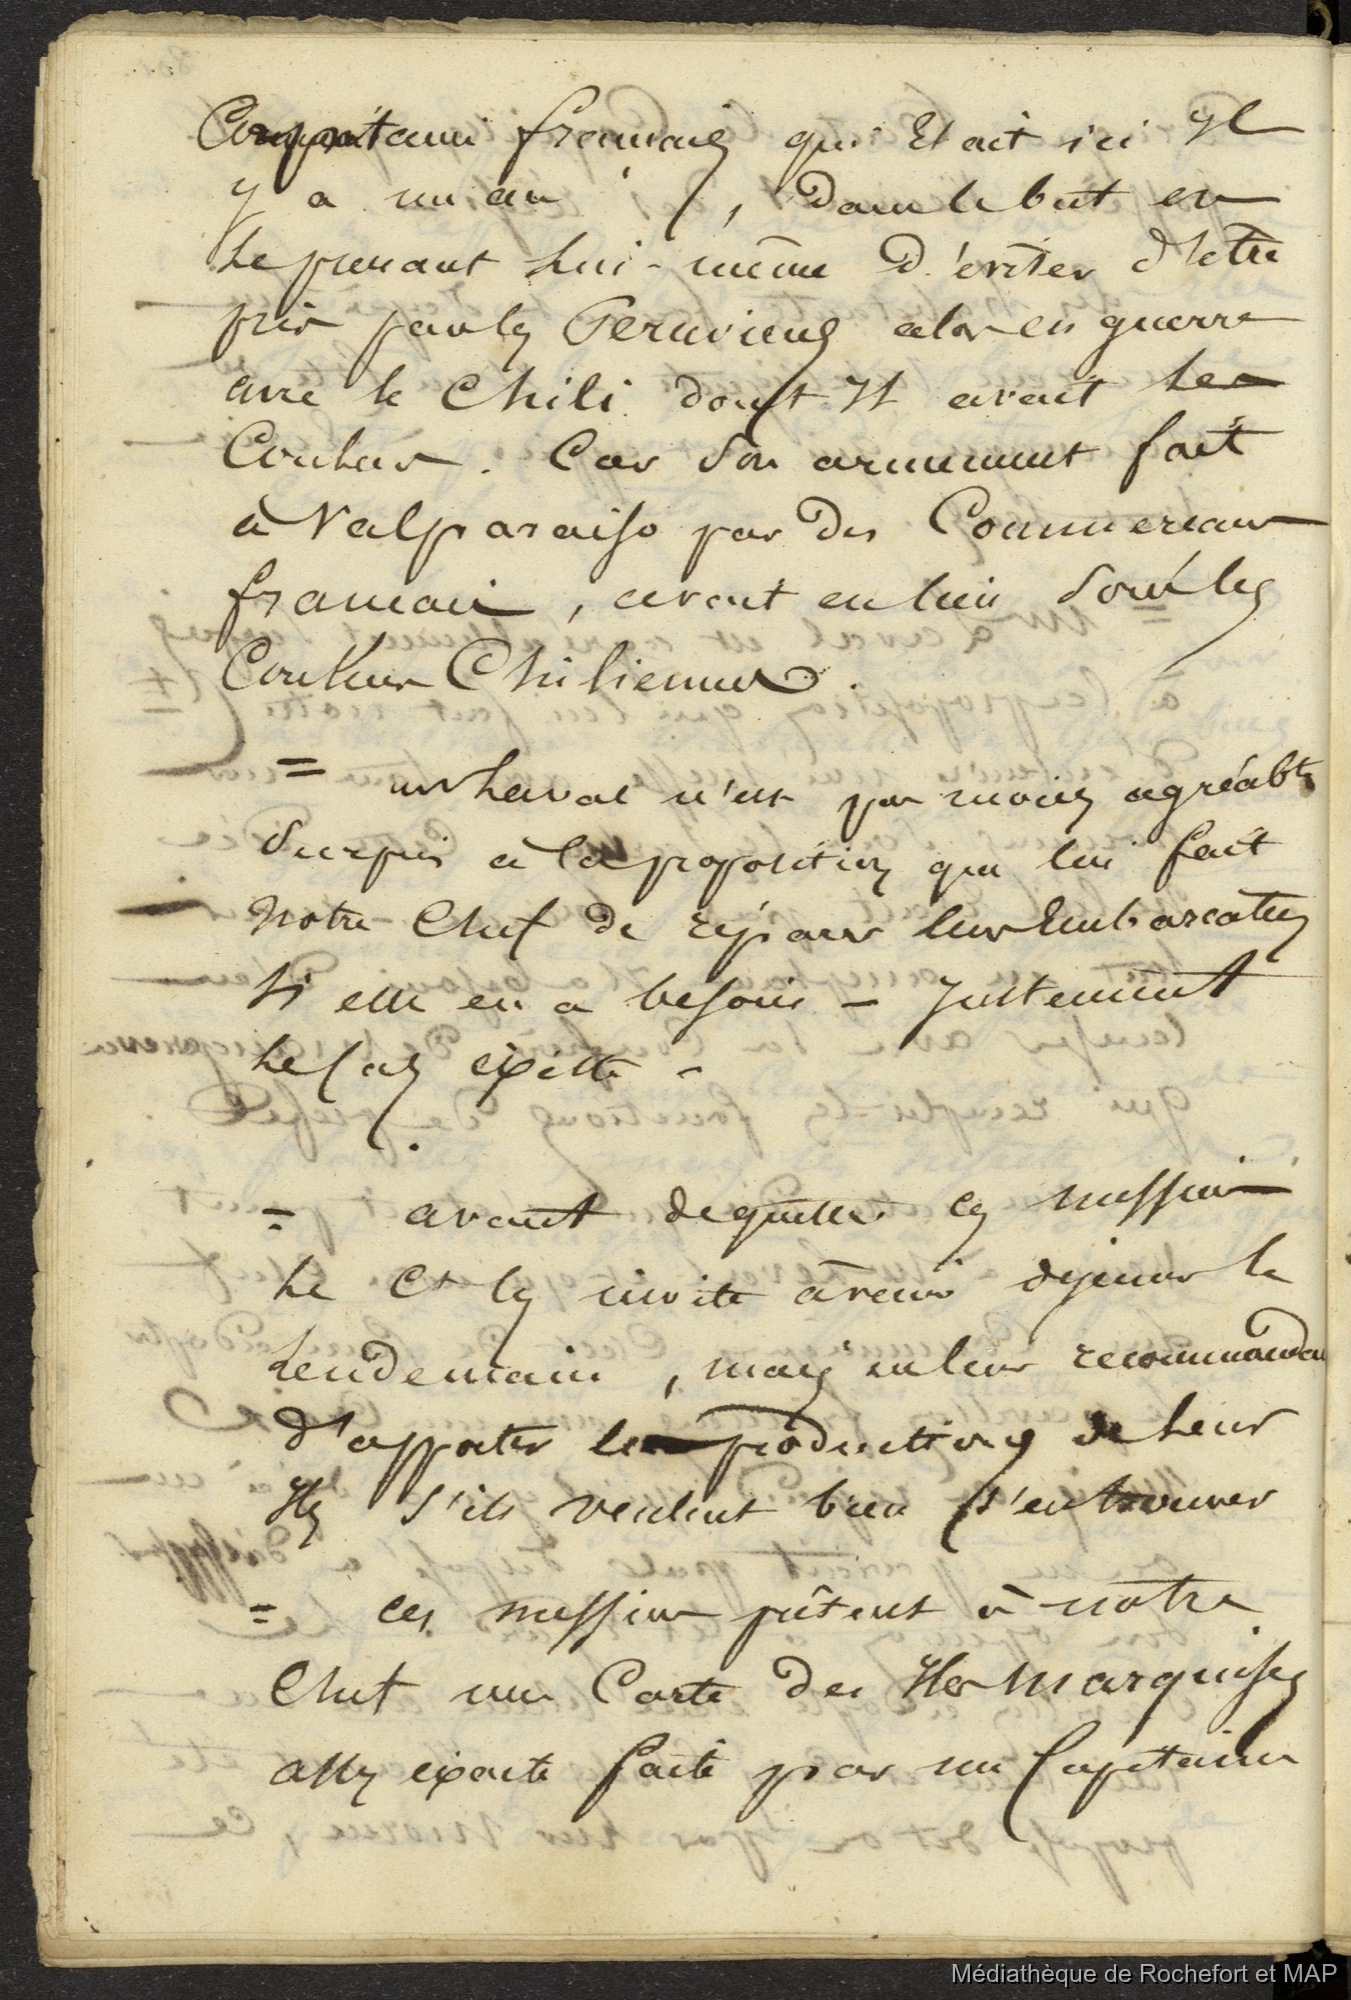 Capitaine français qui Etait ici Il
y a un an ( , dans le but en
le prenant lui-même d'eviter d'etre
pris par les Peruviens alors en guerre
avec le Chili dont Il avait les
Couleurs. Car son armement fait
à Valparaiso par des Commercans
francais, avait eu lieu sous les
Couleurs Chiliennes.
= n'est pas moins agréablt
Surpris à la proposition que lui fait
Notre Chef de réparer leur Embarcation
si elle en a besoin - Justement
le Cas existe -
= avant de quitter ces messieurs
le Ct les invite à venir dejeuner le
lendemain, mais en leur recommandant
d'apporter les productions de leurs
Iles s'ils veulent bien s'en trouver
= ces messieurs prêtent à notre
Chef une Carte des Iles Marquises
assez exacte faite par un Capitaine
Médiathèque de Rochefort et MAP